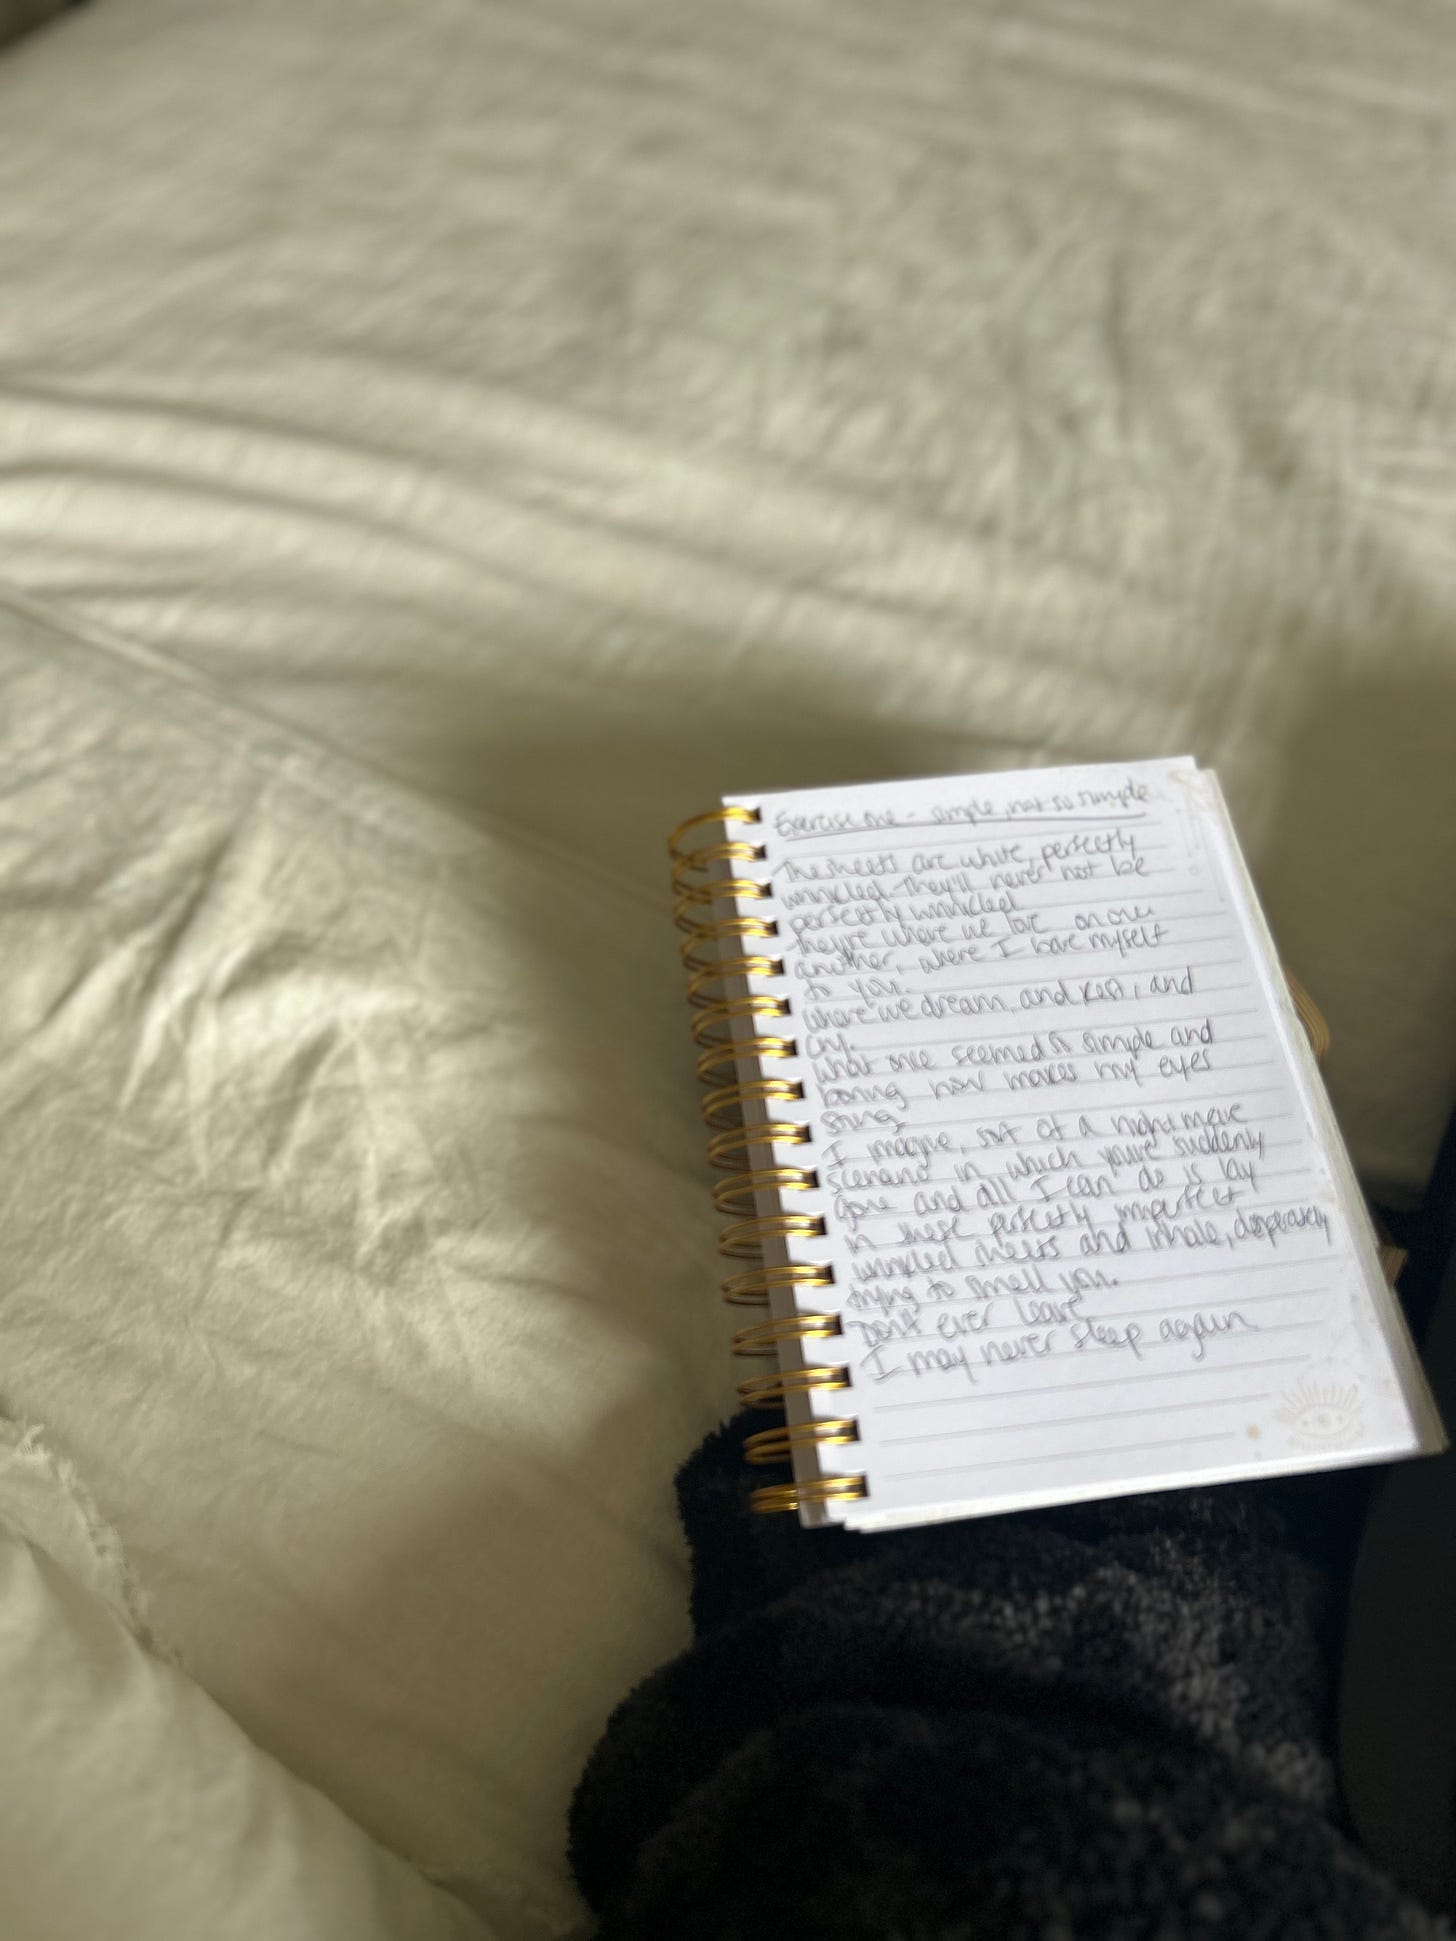 Exercise one - simple, not so simple
The sheets are white, perfectly
wrinkled. They'll never not be
perfectly wrinkled
They're where we love on one
another, where I bare myself
to you.
Where we dream, and rest, and
cry.
What once seemed so simple and
boring now makes my eyes
sting.
I imagine, sort of a nightmare
scenario in which you're suddenly
gone and all I can do is lay
in these perfectly imperfect
wrinkled sheets and inhale, desperately
trying to smell you.
Don't ever leave
I may never sleep again.